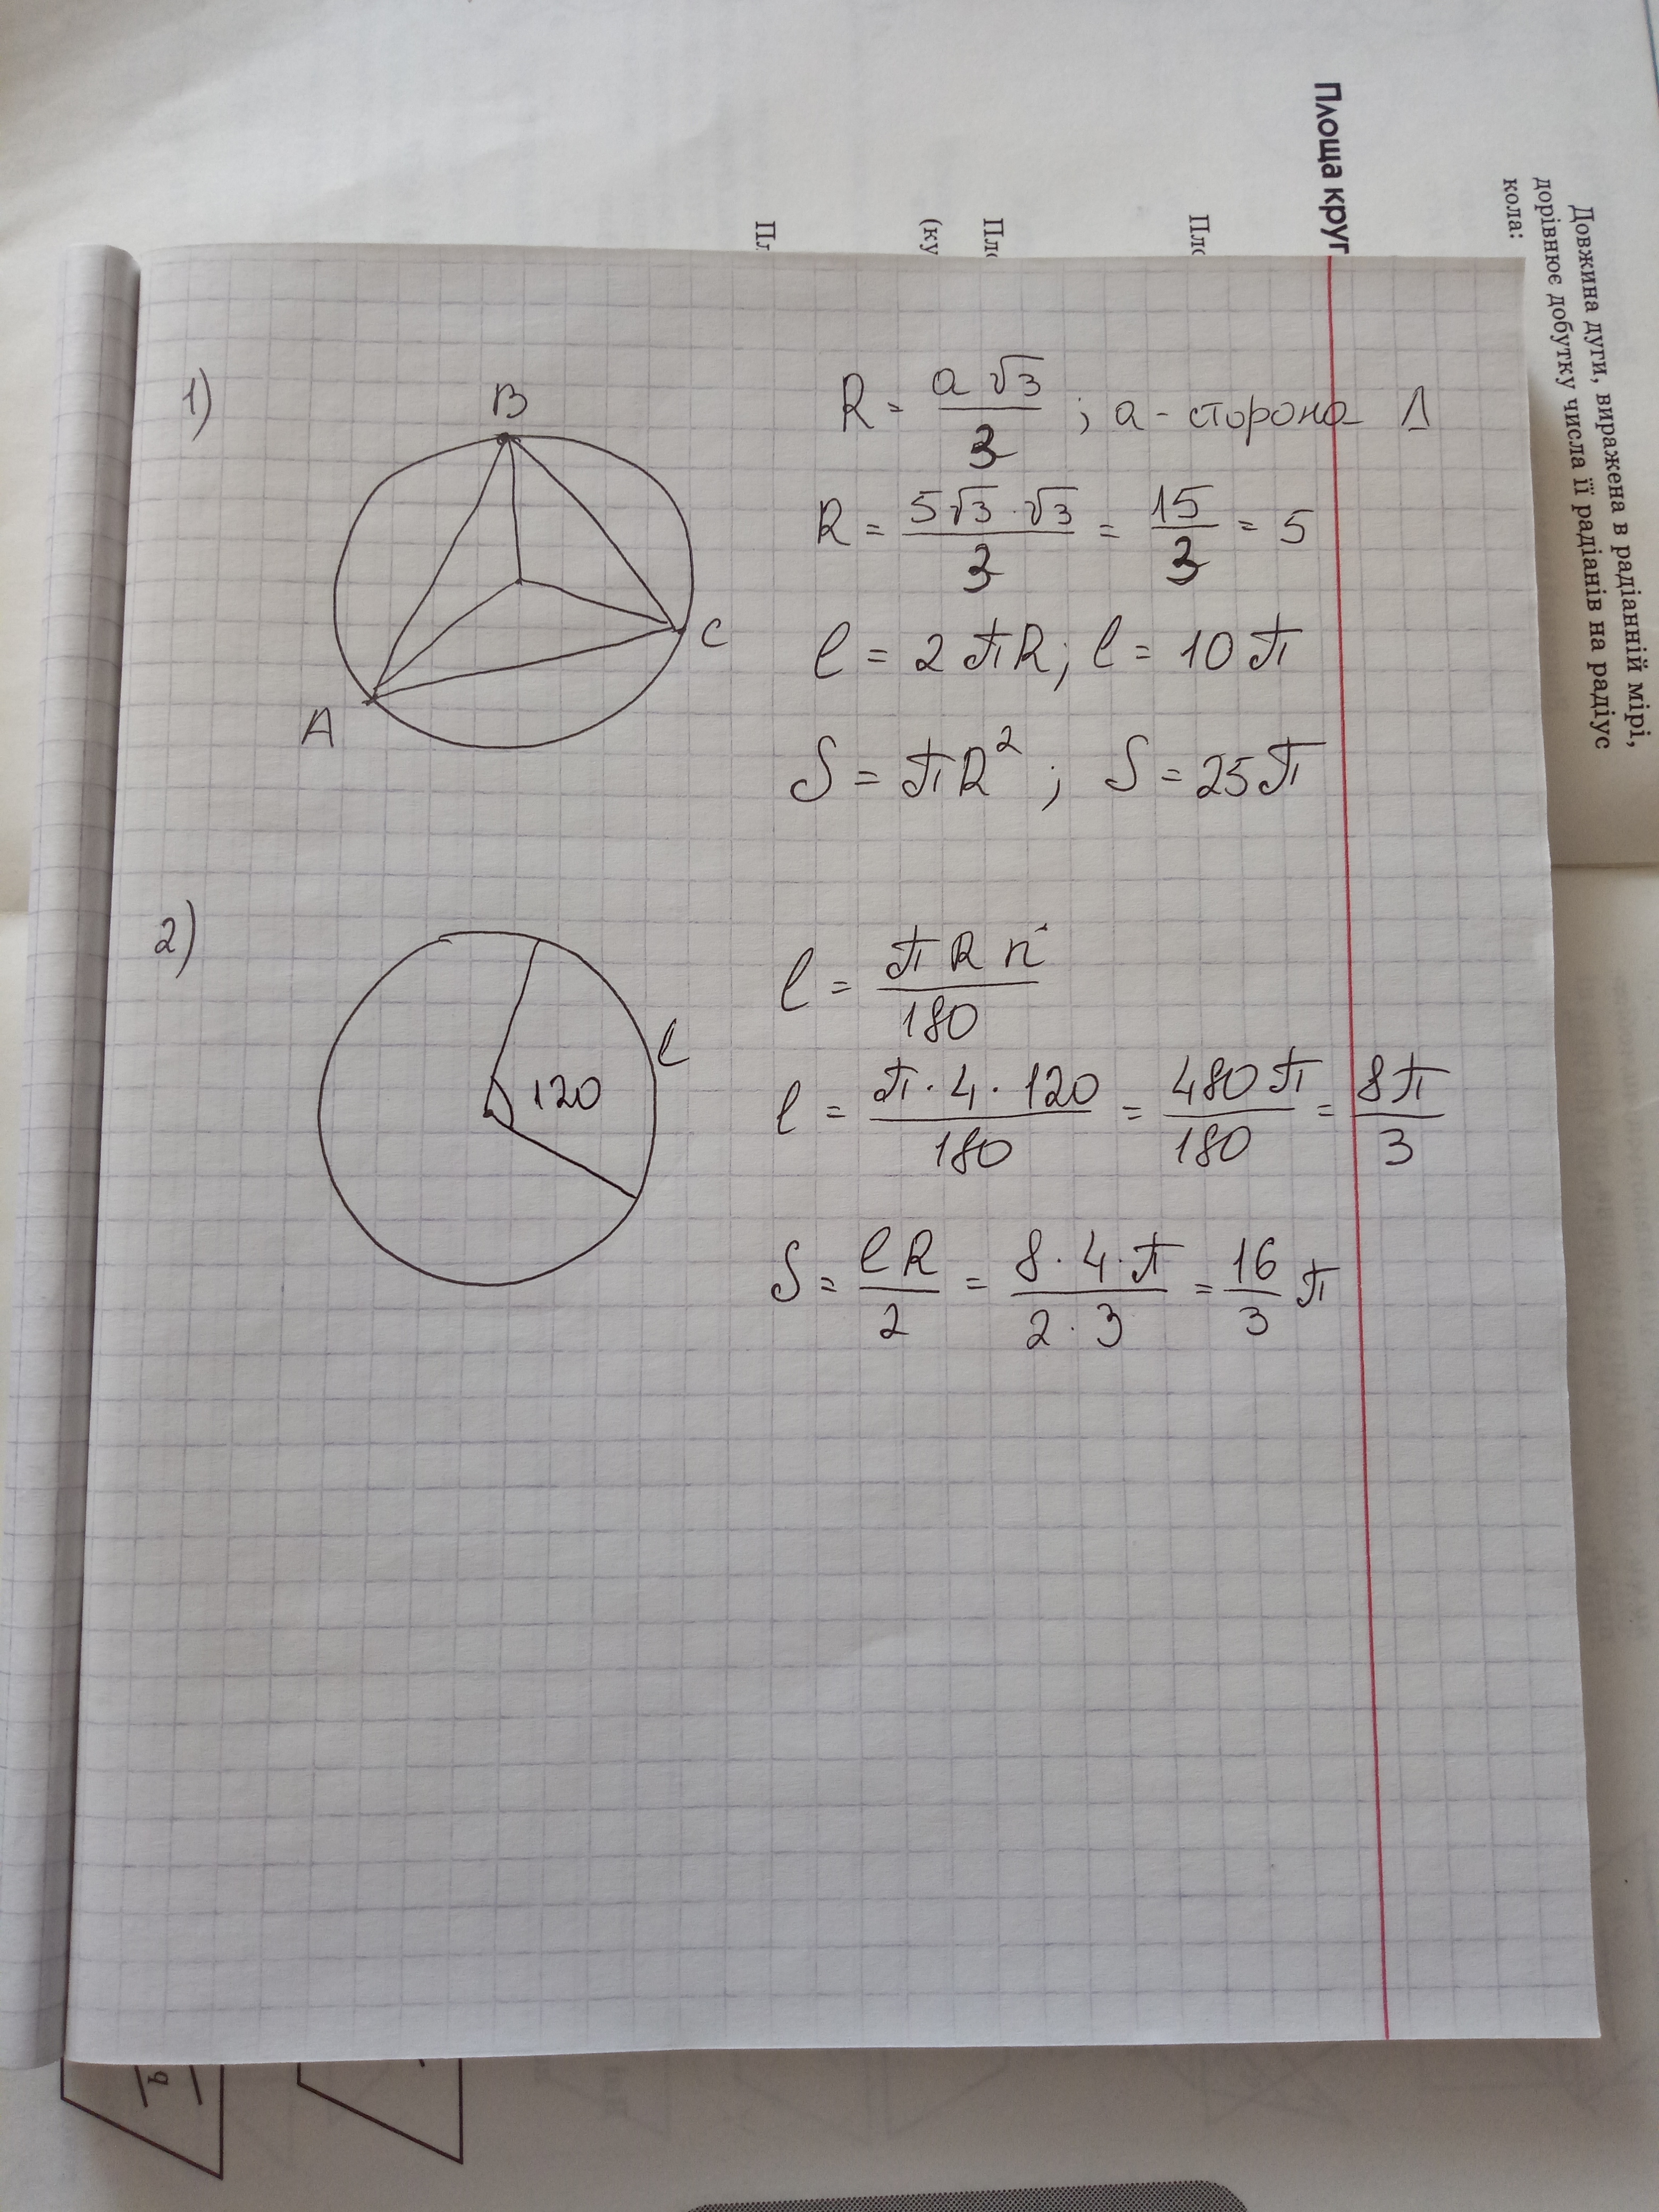 Площа круг
Довжина дуги, виражена в радіанній мірі,
дорівнює добутку числа її радіанів на радіус
кола:
Пло
Пло
(ку
Пл
1)
B
A
C
R = a√3 / 3 ; a - сторона Δ
R = 5√3 · √3 / 3 = 15 / 3 = 5
l = 2πR; l = 10π
S = πR² ; S = 25π
2)
120
l
l = πRn / 180
l = π · 4 · 120 / 180 = 480π / 180 = 8π / 3
S = lR / 2 = 8 · 4 · π / 2 · 3 = 16 / 3 π